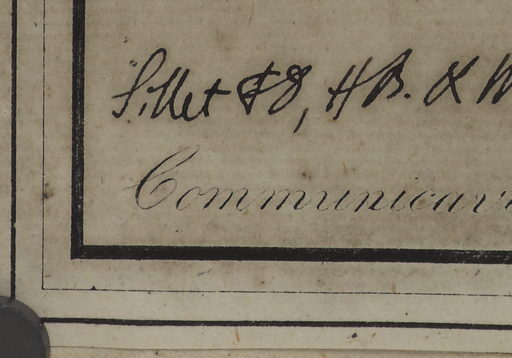 Sillet F8, HB. &
Communicav